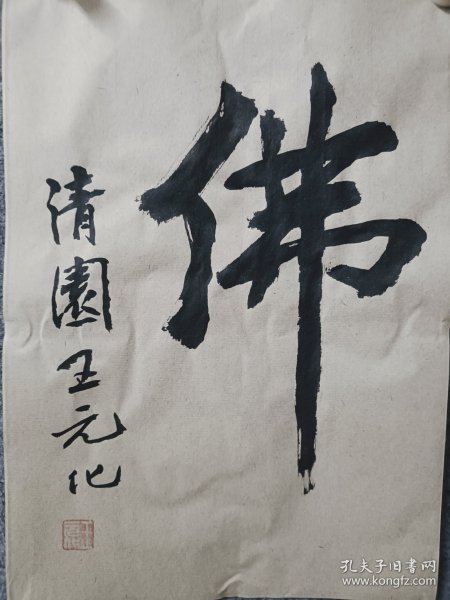 佛
清園王元化
孔夫子旧书网
www.kongfz.com